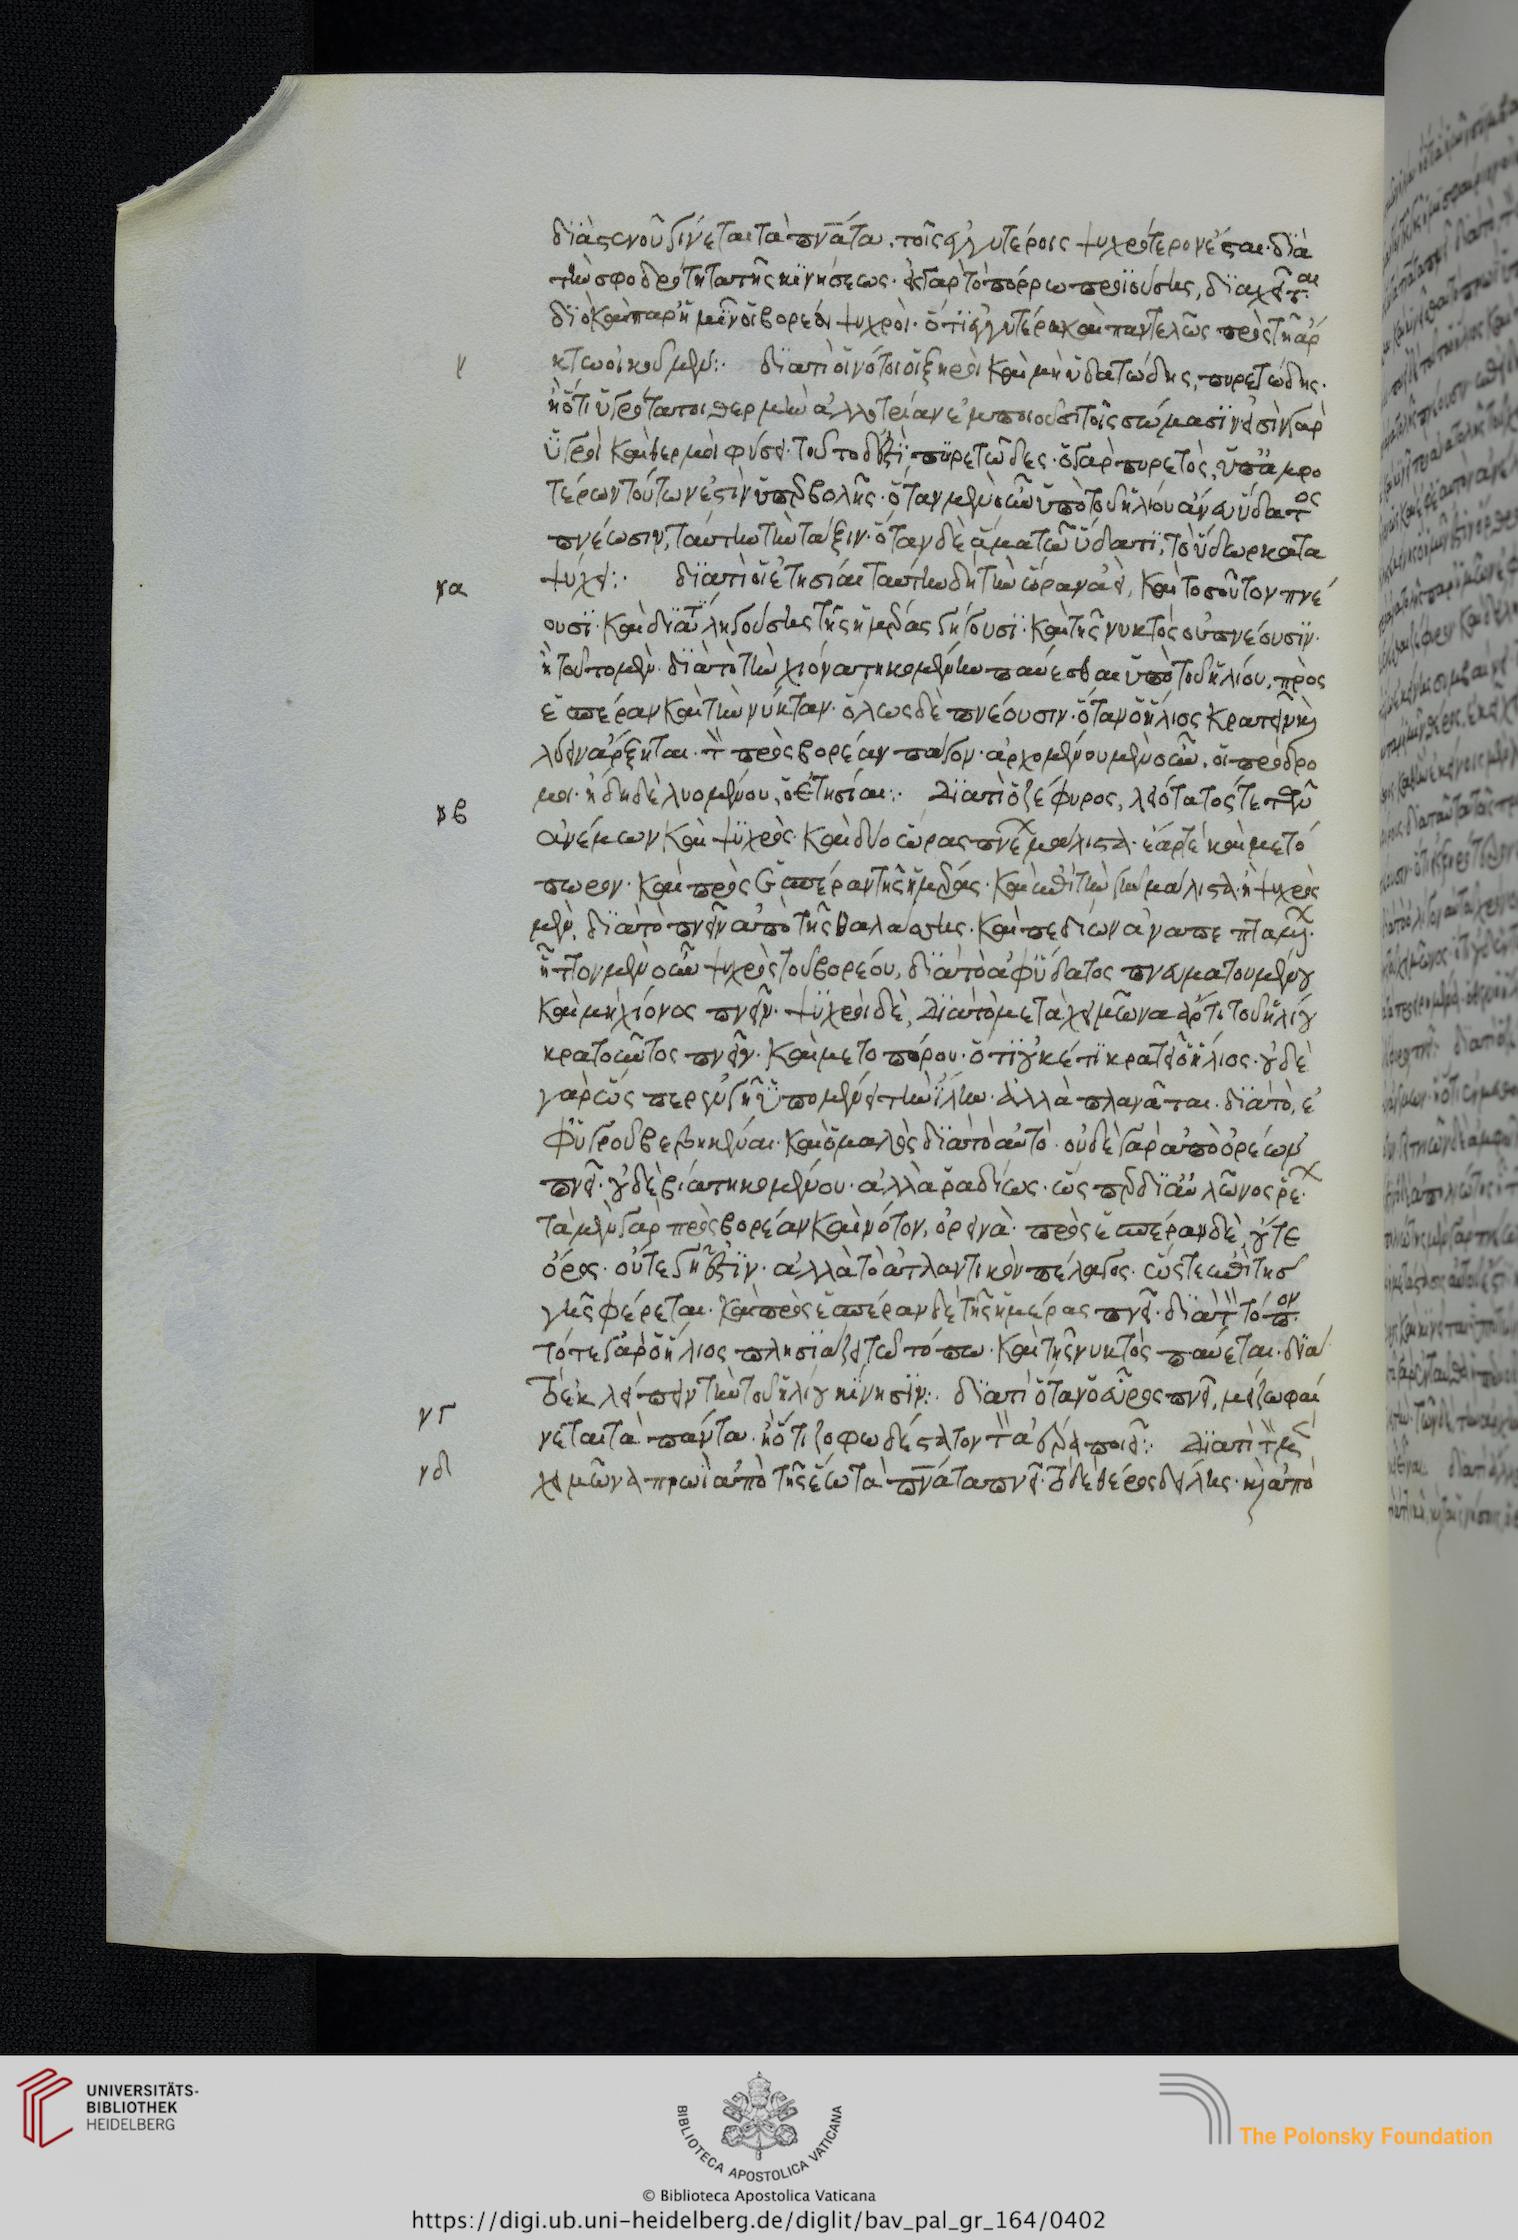 διὰ στενοῦ γίνεται τὰ πν̅άτα. τοῖς ἐγγυτέροις ψυχρότερον ἔσται· διὰ
τὴν σφοδρότητα τῆς κινήσεως. εἰς γὰρ τὸ πόρρω προϊούσης, διαχεῖται
διὸ καὶ παρ' ἡμῖν οἱ βορέαι ψυχροί· ὅτι ἐγγυτέρω καὶ παντελῶς πρὸς τῆ ἄρ
ν
κτω οἰκοῦμεν:· διατί οἱ νότοι οἱ ξηροὶ καὶ μὴ ὑδατώδεις, πυρετώδεις·
ἢ ὅτι ὑγρότητα θερμὴν ἀλλοτρίαν ἐμποιοῦσι τοῖς σώμασιν εἰσὶν γὰρ
ὑγροὶ καὶ θερμοὶ φύσει· τοῦτο δ' ἐστὶ πυρετῶδες· ὁ γὰρ πυρετὸς, ὑπ' ἀμφο
τέρων τούτων ἐστὶν ὑπερβολῆς· ὅταν μὲν οὖν ὑπὸ τοῦ ἡλίου ἄνευ ὕδατος
πνέωσιν, ταύτην τὴν τάξιν· ὅταν δὲ ἅμα τῶ ὕδατι, τὸ ὕδωρ κατα
να
ψύχει:· διατί οἱ ἐτησίαι ταύτην δὴ τὴν ὥραν ἀεὶ, καὶ τοσοῦτον πνέ
ουσι· καὶ διατί ληγούσης τῆς ἡμέρας λήγουσι· καὶ τῆς νυκτὸς οὐ πνέουσιν·
ἢ τοῦτο μὲν· διὰ τὸ τὴν χιόνα τηκομένην παύεσθαι ὑπὸ τοῦ ἡλίου, πρὸς
ἑσπέραν καὶ τὴν νύκταν· ὅλως δὲ πνέουσιν· ὅταν ὁ ἥλιος κρατεῖν καὶ
λύειν ἄρξηται· τὸν πρὸς βορέαν πάγον· ἀρχομένου μὲν οὖν, οἱ πρόδρο
νβ
μοι· ἤδη δὲ λυομένου, οἱ ἐτησίαι:· Διατί ὁ ζέφυρος, λειότατός τε τῶν
ἀνέμων καὶ ψυχρὸς· καὶ δύο ὥρας πνεῖ μάλιστα· ἔαρ τὲ καὶ μετό
πωρον· καὶ πρὸς ἑσπέραν τῆς ἡμέρας· καὶ ἐπὶ τὴν γῆν μάλιστα· ἢ ψυχρὸς
μὲν, διὰ τὸ πνεῖν ἀπὸ τῆς θαλάσσης· καὶ πεδίων ἀναπεπταμέν·
ἧττον μὲν οὖν ψυχρὸς τοῦ βορέου, διὰ τὸ ἀφ' ὕδατος πνευματουμένου
καὶ μὴ χιόνος πνεῖν· ψυχροὶ δὲ, Διὰ τὸ μετὰ χειμῶνα ἄρτι τοῦ ἡλίου
κρατοῦντος πνεῖν· καὶ μετοπόρου· ὅτι οὐκέτι κρατεῖ ὁ ἥλιος· οὐδὲ
γὰρ ὥς περ ἐν γῆ ὑπομένει τὴν ὕλην· ἀλλὰ πλανᾶται· διὰ τὸ, ἐ
φ' ὑγροῦ βεβηκέναι· καὶ ὁμαλὸς διὰ τὸ αὐτό· οὐδὲ γὰρ ἀπὸ ὀρέων
πνεῖ· οὐδὲ βία τηκομένου· ἀλλὰ ῥαδίως· ὥς περ δι' αὐλῶνος ῥε·
τὰ μὲν γὰρ πρὸς βορέαν καὶ νότον, ὀρεινὰ· πρὸς ἑσπέραν δὲ, οὔτε
ὄρος· οὔτε γῆ ἐστὶν· ἀλλὰ τὸ ἀτλαντικὸν πέλαγος· ὥςτε ἐπὶ τῆς
γῆς φέρεται· καὶ πρὸς ἑσπέραν δὲ τῆς ἡμέρας πνεῖ· διὰ τὸν τόπον·
τότε γὰρ ὁ ἥλιος πλησιάζει τῶ τόπω· καὶ τῆς νυκτὸς παύεται· διὰ
νγ
τὸ ἐκλείπειν τὴν τοῦ ἡλίου κίνησιν:· διατί ὅταν ὁ εὖρος πνεῖ, μείζω φαί
νεται τὰ πάντα· ἢ ὅτι ζοφωδέστατον τὸν ἀέρα ποιεῖ:· Διατί τὸν μὲν
νδ
χειμῶνα πρωῒ ἀπὸ τῆς ἕω τὰ πν̅άτα πνεῖ· τὸ δὲ θέρος δείλης· καὶ ἀπὸ
UNIVERSITÄTS-
BIBLIOTHEK
HEIDELBERG
BIBLIOTECA APOSTOLICA VATICANA
The Polonsky Foundation
© Biblioteca Apostolica Vaticana
https://digi.ub.uni-heidelberg.de/diglit/bav_pal_gr_164/0402